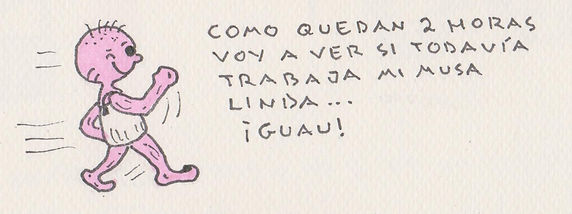 COMO QUEDAN 2 HORAS
VOY A VER SI TODAVÍA
TRABAJA MI MUSA
LINDA...
¡GUAU!